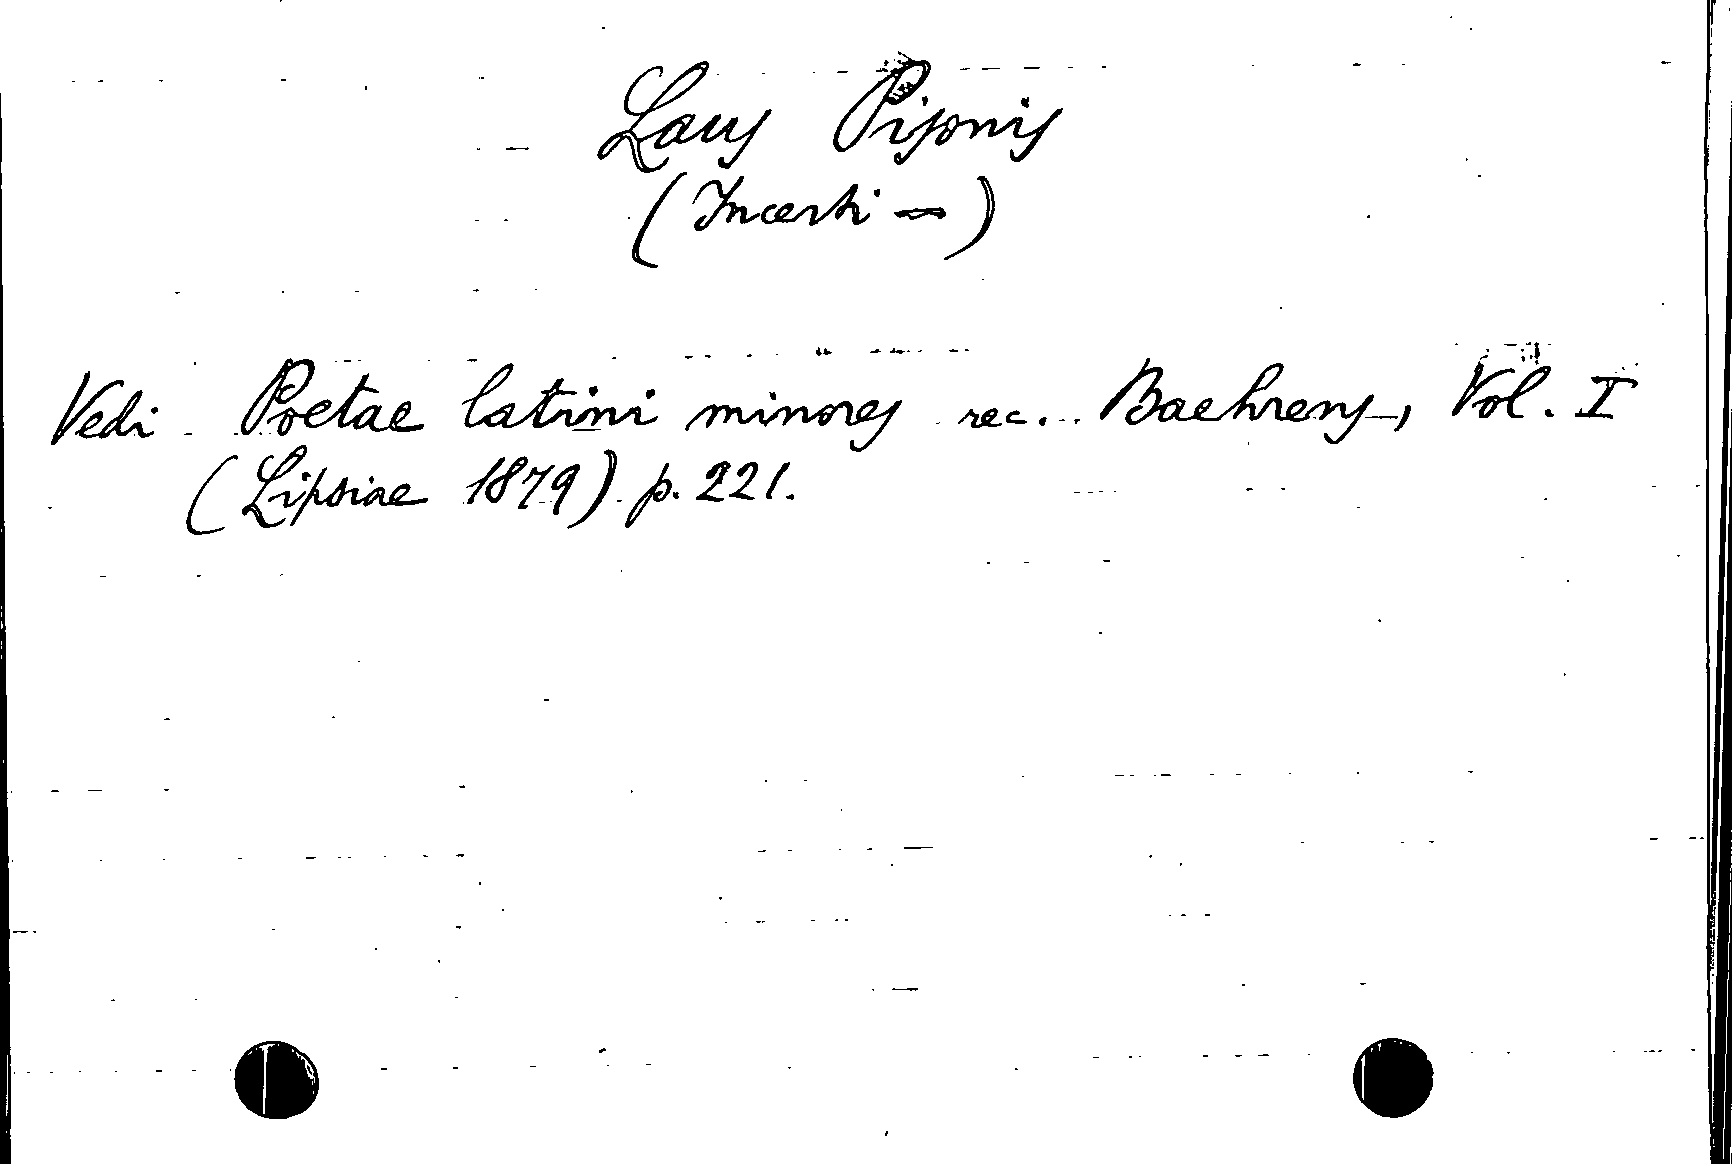 Laus Pisonis
(Incerti —)
Vedi Poetae latini minores rec. Baehrens, Vol. I
(Lipsiae 1879) p. 221.